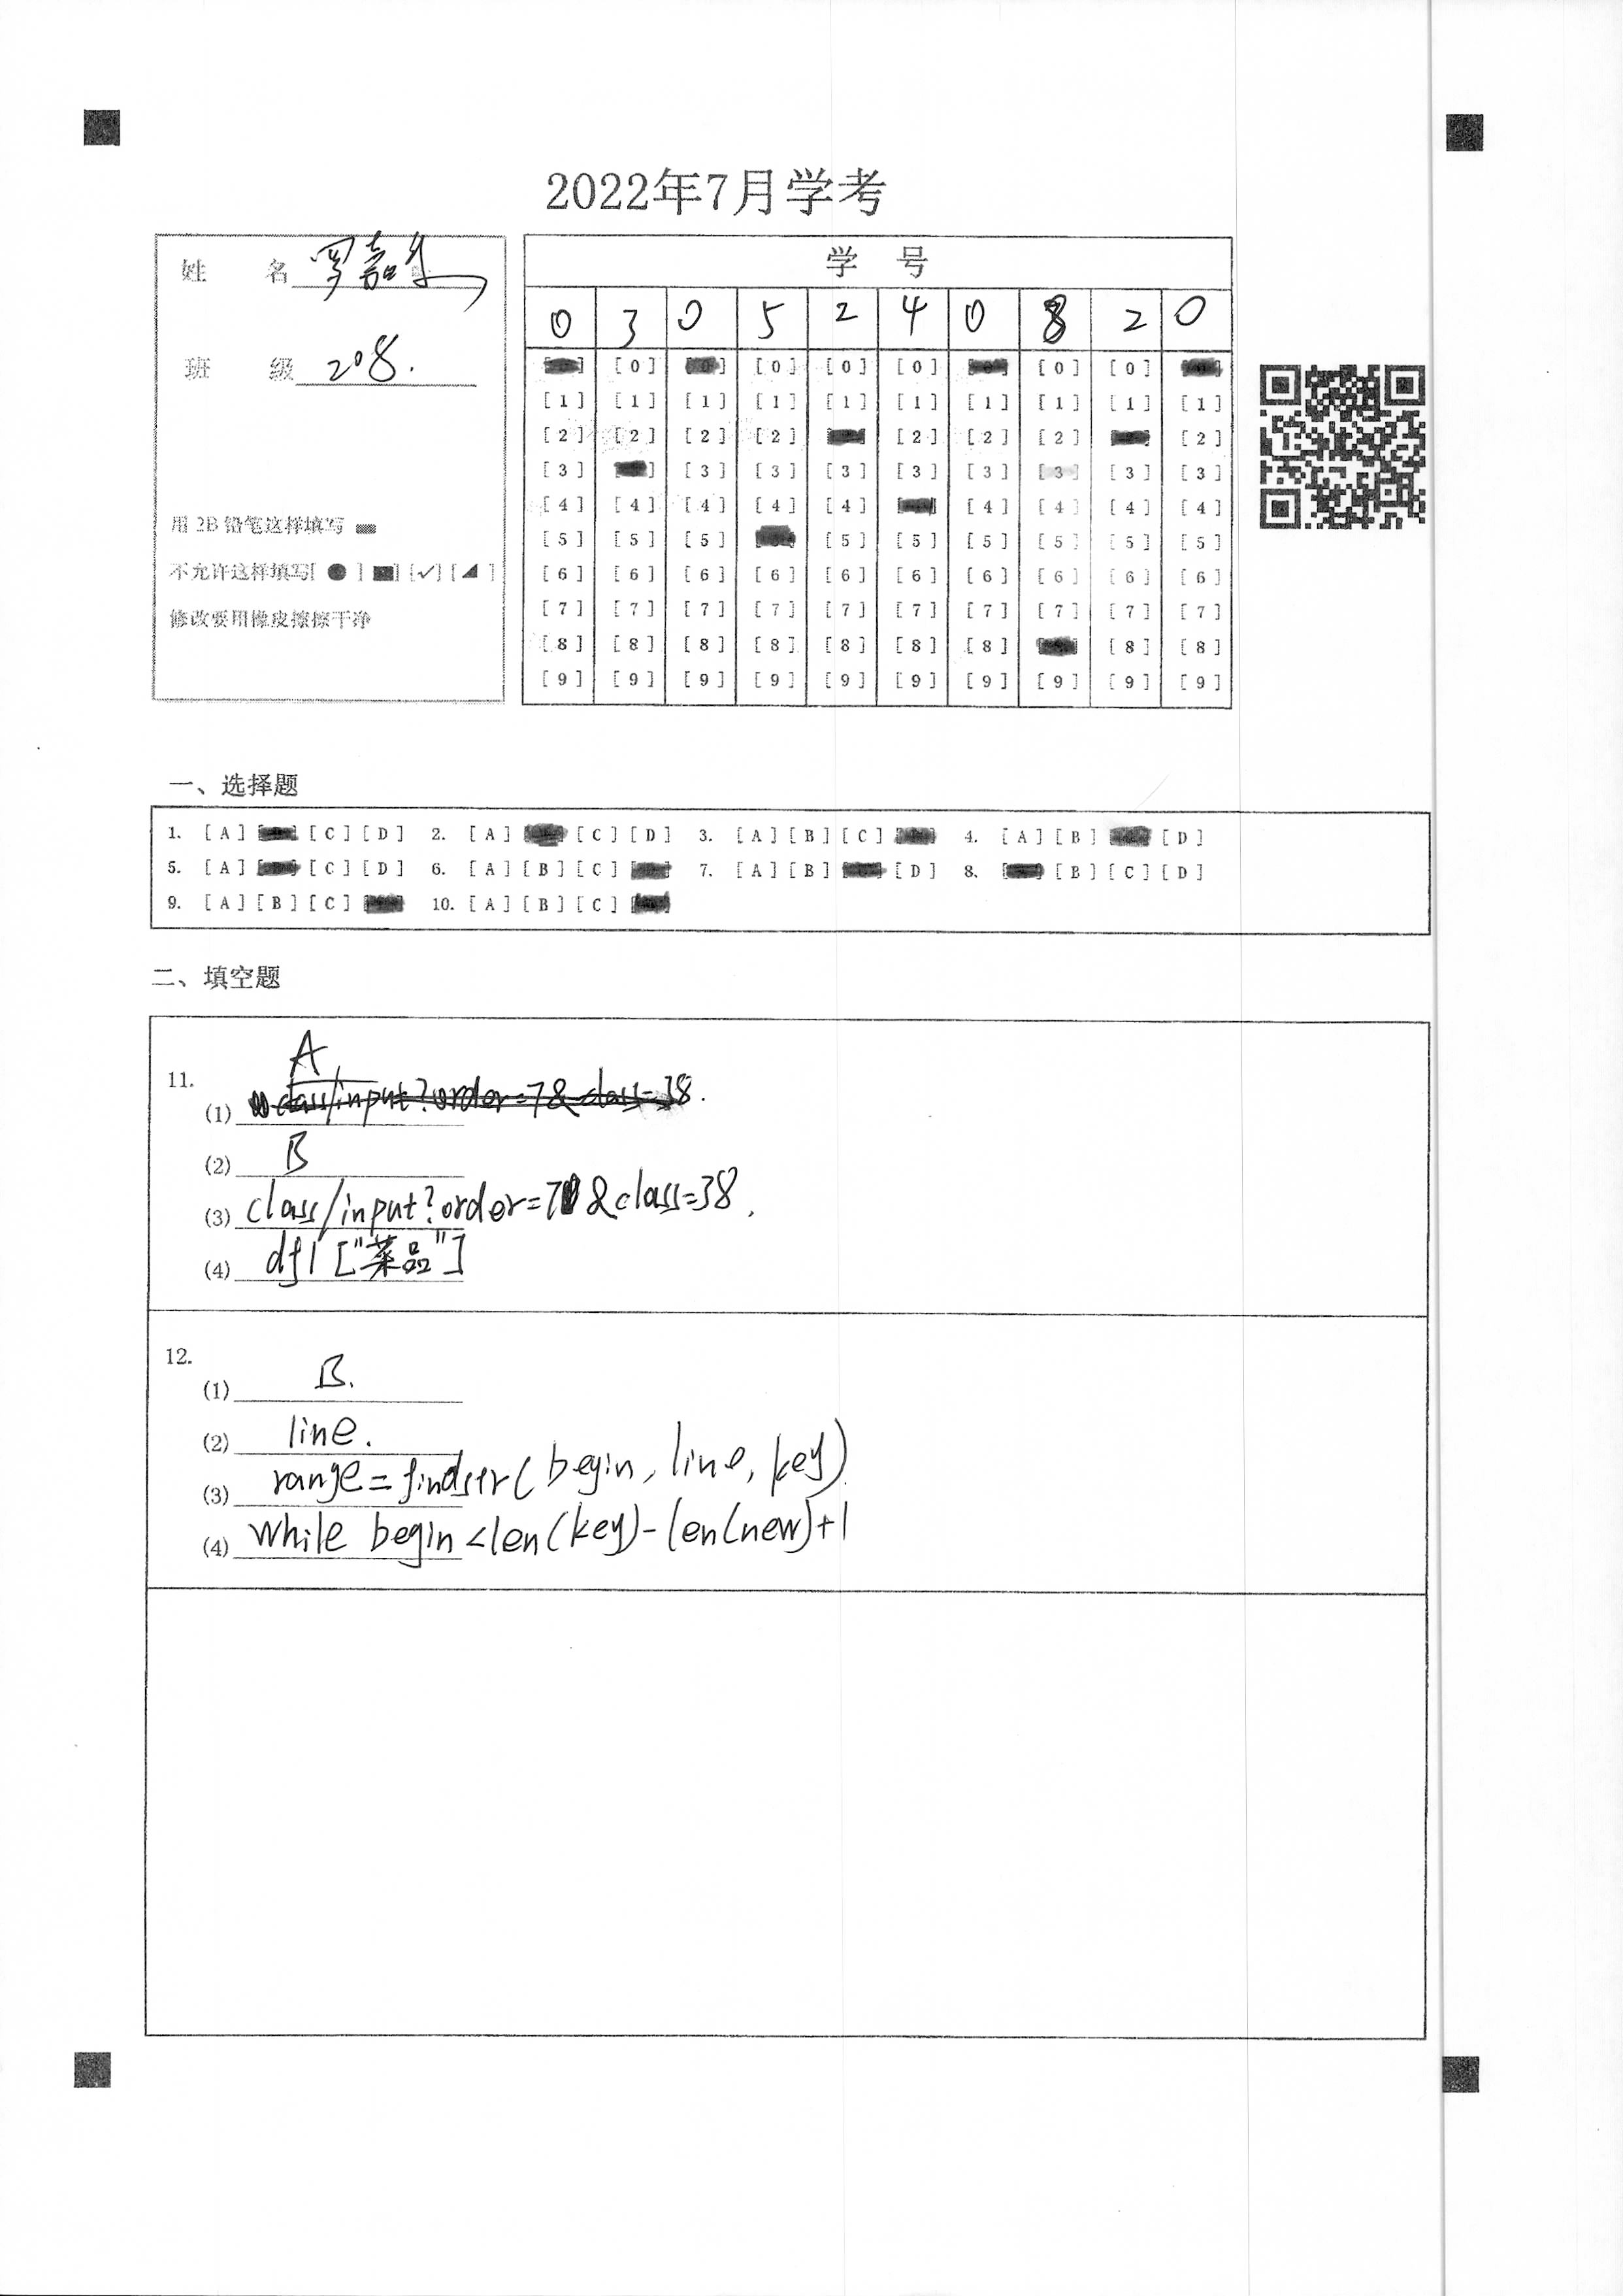 2022年7月学考
姓 名 罗嘉
班 级 208.
用 2B 铅笔这样填写
不允许这样填写[ ● ] [■] [✓] [◢ ]
修改要用橡皮擦擦干净
学 号
0 3 0 5 2 4 0 8 2 0
[0] [0] [0] [0] [0]
[1] [1] [1] [1] [1] [1] [1] [1] [1] [1]
[2] [2] [2] [2] [2] [2] [2] [2]
[3] [3] [3] [3] [3] [3] [3] [3] [3]
[4] [4] [4] [4] [4] [4] [4] [4] [4]
[5] [5] [5] [5] [5] [5] [5] [5] [5]
[6] [6] [6] [6] [6] [6] [6] [6] [6] [6]
[7] [7] [7] [7] [7] [7] [7] [7] [7] [7]
[8] [8] [8] [8] [8] [8] [8] [8] [8]
[9] [9] [9] [9] [9] [9] [9] [9] [9] [9]
一、选择题
1. [A] [C] [D] 2. [A] [C] [D] 3. [A] [B] [C] 4. [A] [B] [D]
5. [A] [C] [D] 6. [A] [B] [C] 7. [A] [B] [D] 8. [B] [C] [D]
9. [A] [B] [C] 10. [A] [B] [C]
二、填空题
11.
A
(1) class/input?order=7&class=38.
(2) B
(3) class/input?order=7&class=38.
(4) df1["菜品"]
12.
(1) B.
(2) line.
(3) range=findstr(begin, line, key)
(4) while begin<len(key)-len(new)+1